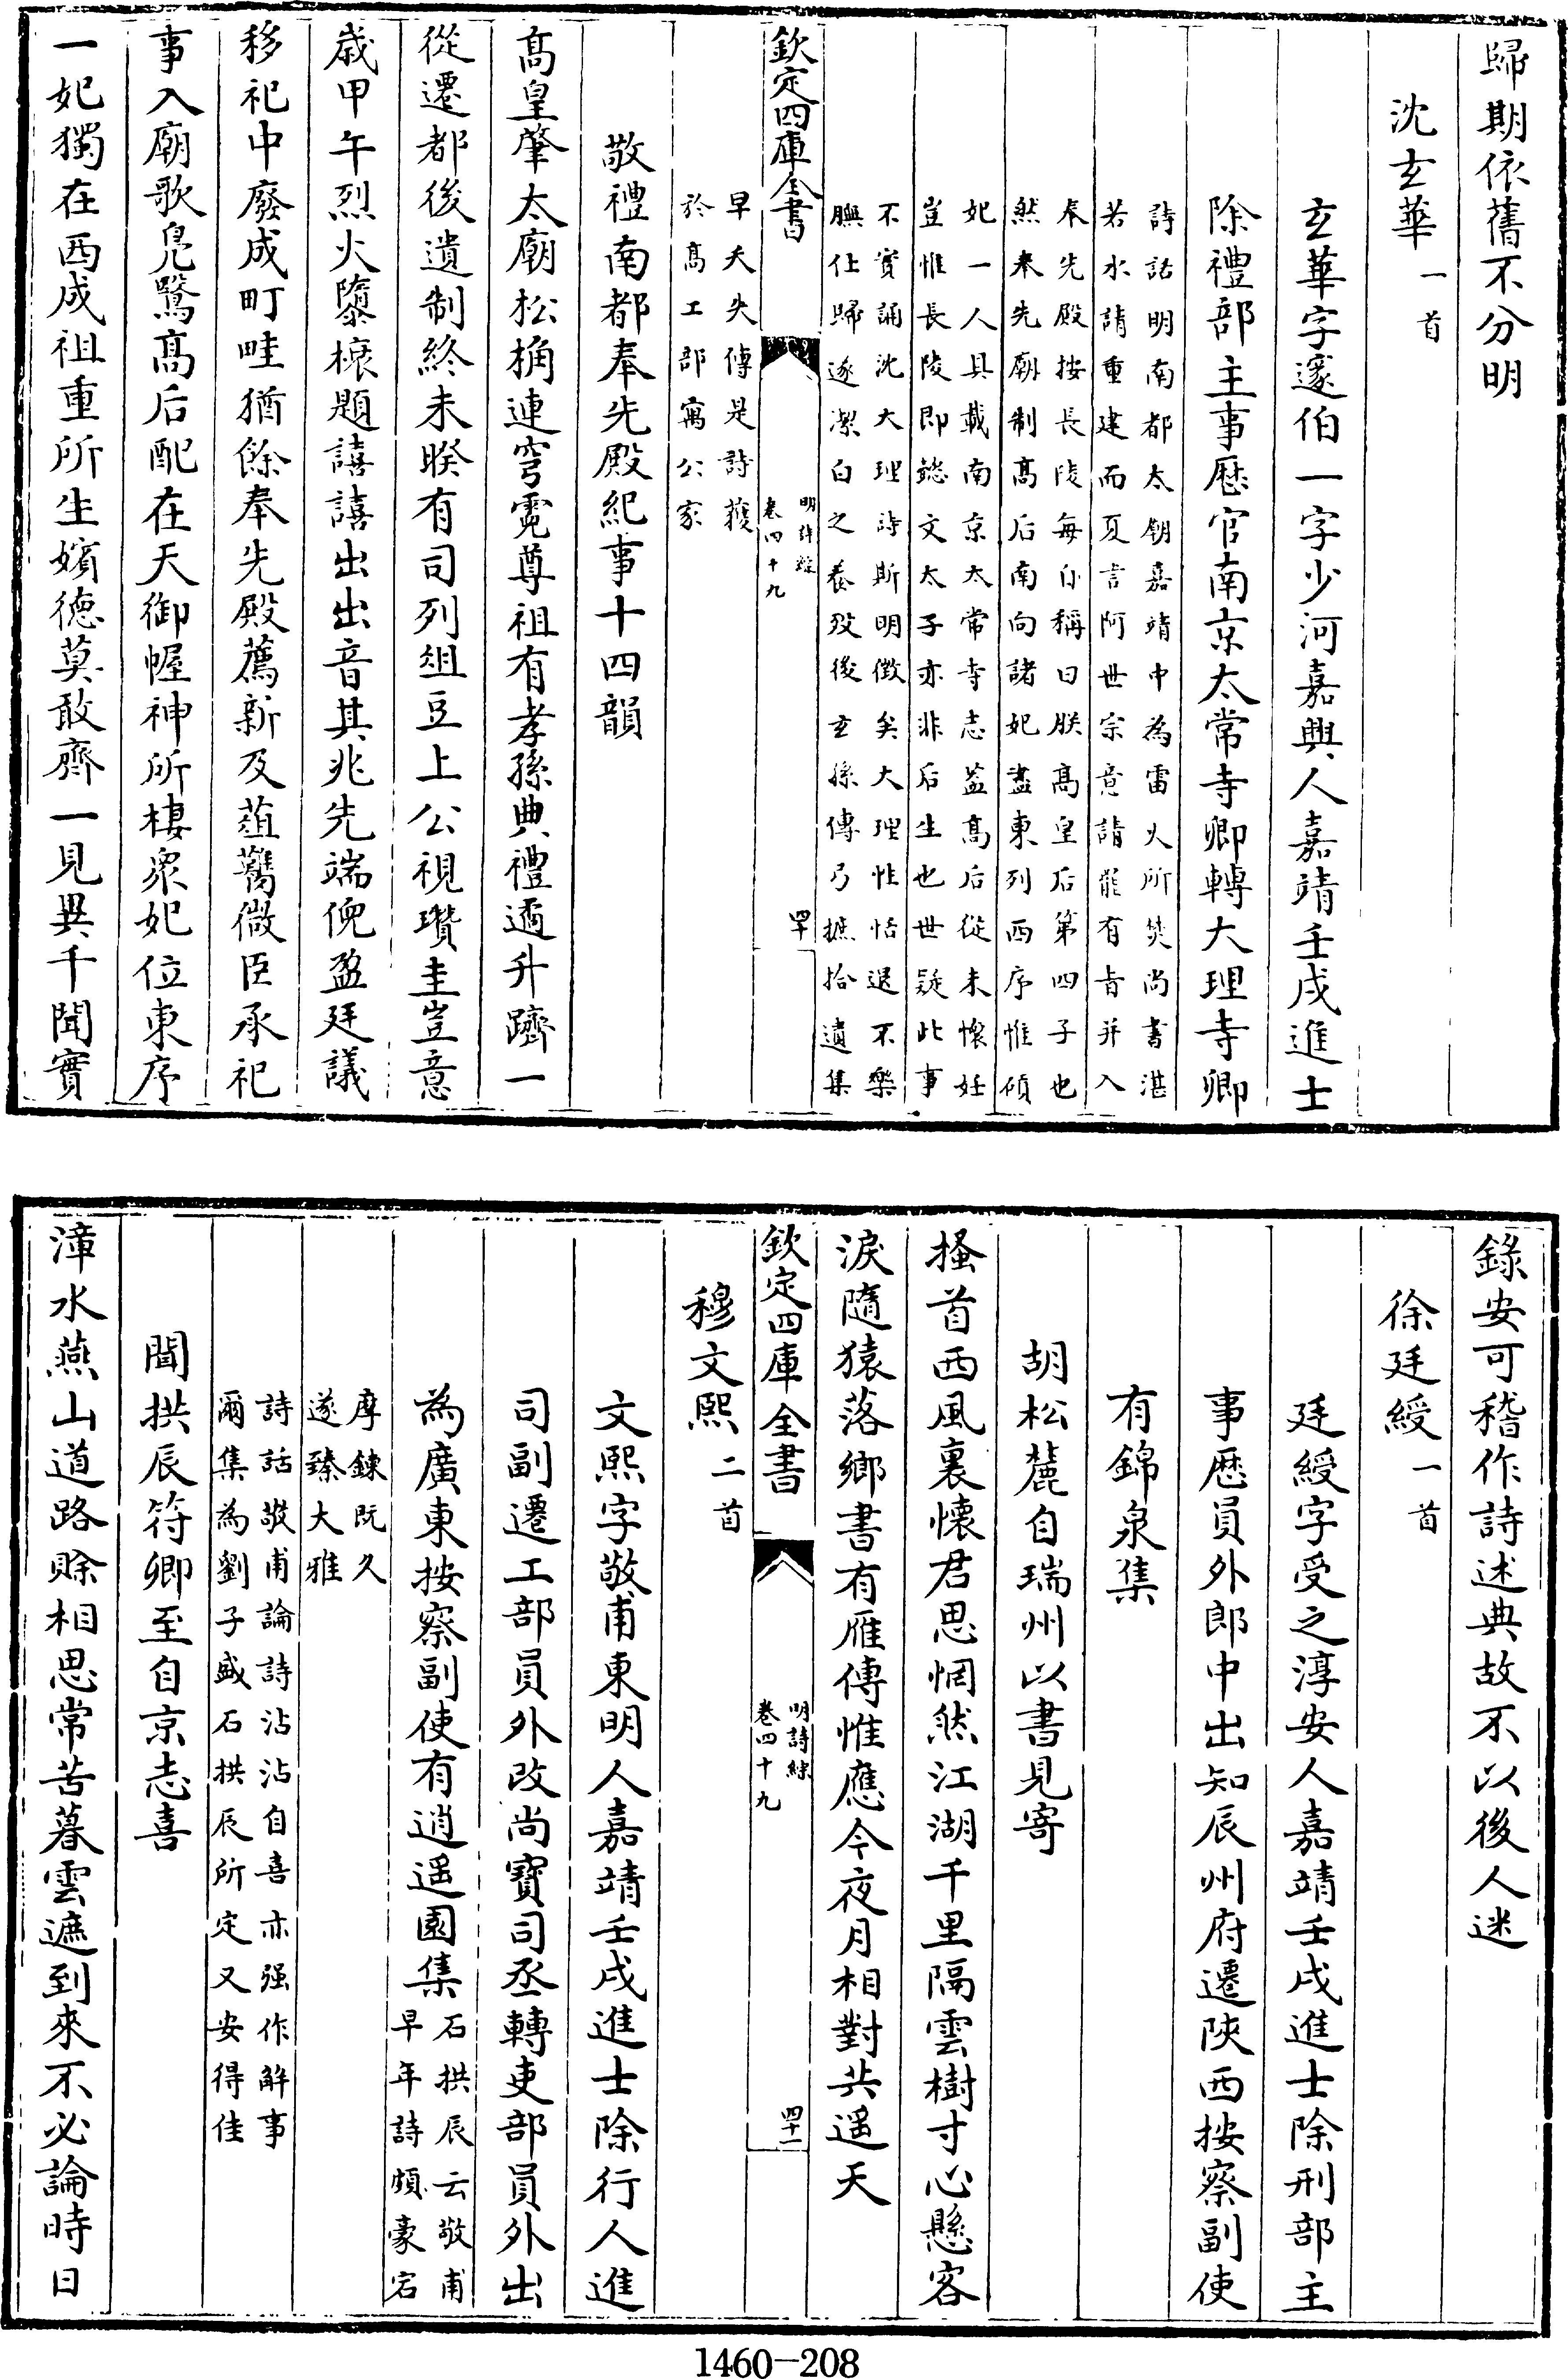 歸期依舊不分明
沈玄華一首
玄華字邃伯一字少河嘉興人嘉靖壬戌進士
除禮部主事歷官南京太常寺卿轉大理寺卿
詩話明南都太廟嘉靖中為雷火所焚尚書湛
若水請重建而夏言阿世宗意請罷有旨并入
奉先殿按長陵每自稱曰朕高皇后第四子也
然奉先廟制高后南向諸妃盡東列西序惟碩
妃一人具載南京太常寺志葢高后從未懷妊
豈惟長陵即懿文太子亦非后生也世疑此事
不實誦沈大理詩斯明徵矣大理性恬退不樂
膴仕歸遂潔白之養歿後玄孫傳弓摭拾遺集
欽定四庫全書
明詩綜
卷四十九
四十
早夭失傳是詩獲
於高工部寓公家
敬禮南都奉先殿紀事十四韻
高皇肇太廟松桷連穹霓尊祖有孝孫典禮遹升躋一
從遷都後遺制終未暌有司列俎豆上公視瓚圭豈意
歲甲午烈火隳榱題譆譆出出音其兆先端倪盈廷議
移祀中廢成町畦猶餘奉先殿薦新及葅蠵微臣承祀
事入廟歌鳧鷖高后配在天御幄神所棲衆妃位東序
一妃獨在西成祖重所生嬪德莫敢齊一見異千聞實
錄安可稽作詩述典故不以後人迷
徐廷綬一首
廷綬字受之淳安人嘉靖壬戌進士除刑部主
事歷員外郎中出知辰州府遷陜西按察副使
有錦泉集
胡松麓自瑞州以書見寄
搔首西風裏懷君思惘然江湖千里隔雲樹寸心懸客
淚隨猿落鄉書有雁傳惟應今夜月相對共遥天
欽定四庫全書
明詩綜
卷四十九
四十一
穆文熙二首
文熙字敬甫東明人嘉靖壬戌進士除行人進
司副遷工部員外改尚寶司丞轉吏部員外出
為廣東按察副使有逍遥園集
石拱辰云敬甫
早年詩頗豪宕
摩鍊既久
遂臻大雅
詩話敬甫論詩沾沾自喜亦强作解事
爾集為劉子威石拱辰所定又安得佳
聞拱辰符卿至自京志喜
漳水燕山道路賒相思常苦暮雲遮到來不必論時日
1460－208